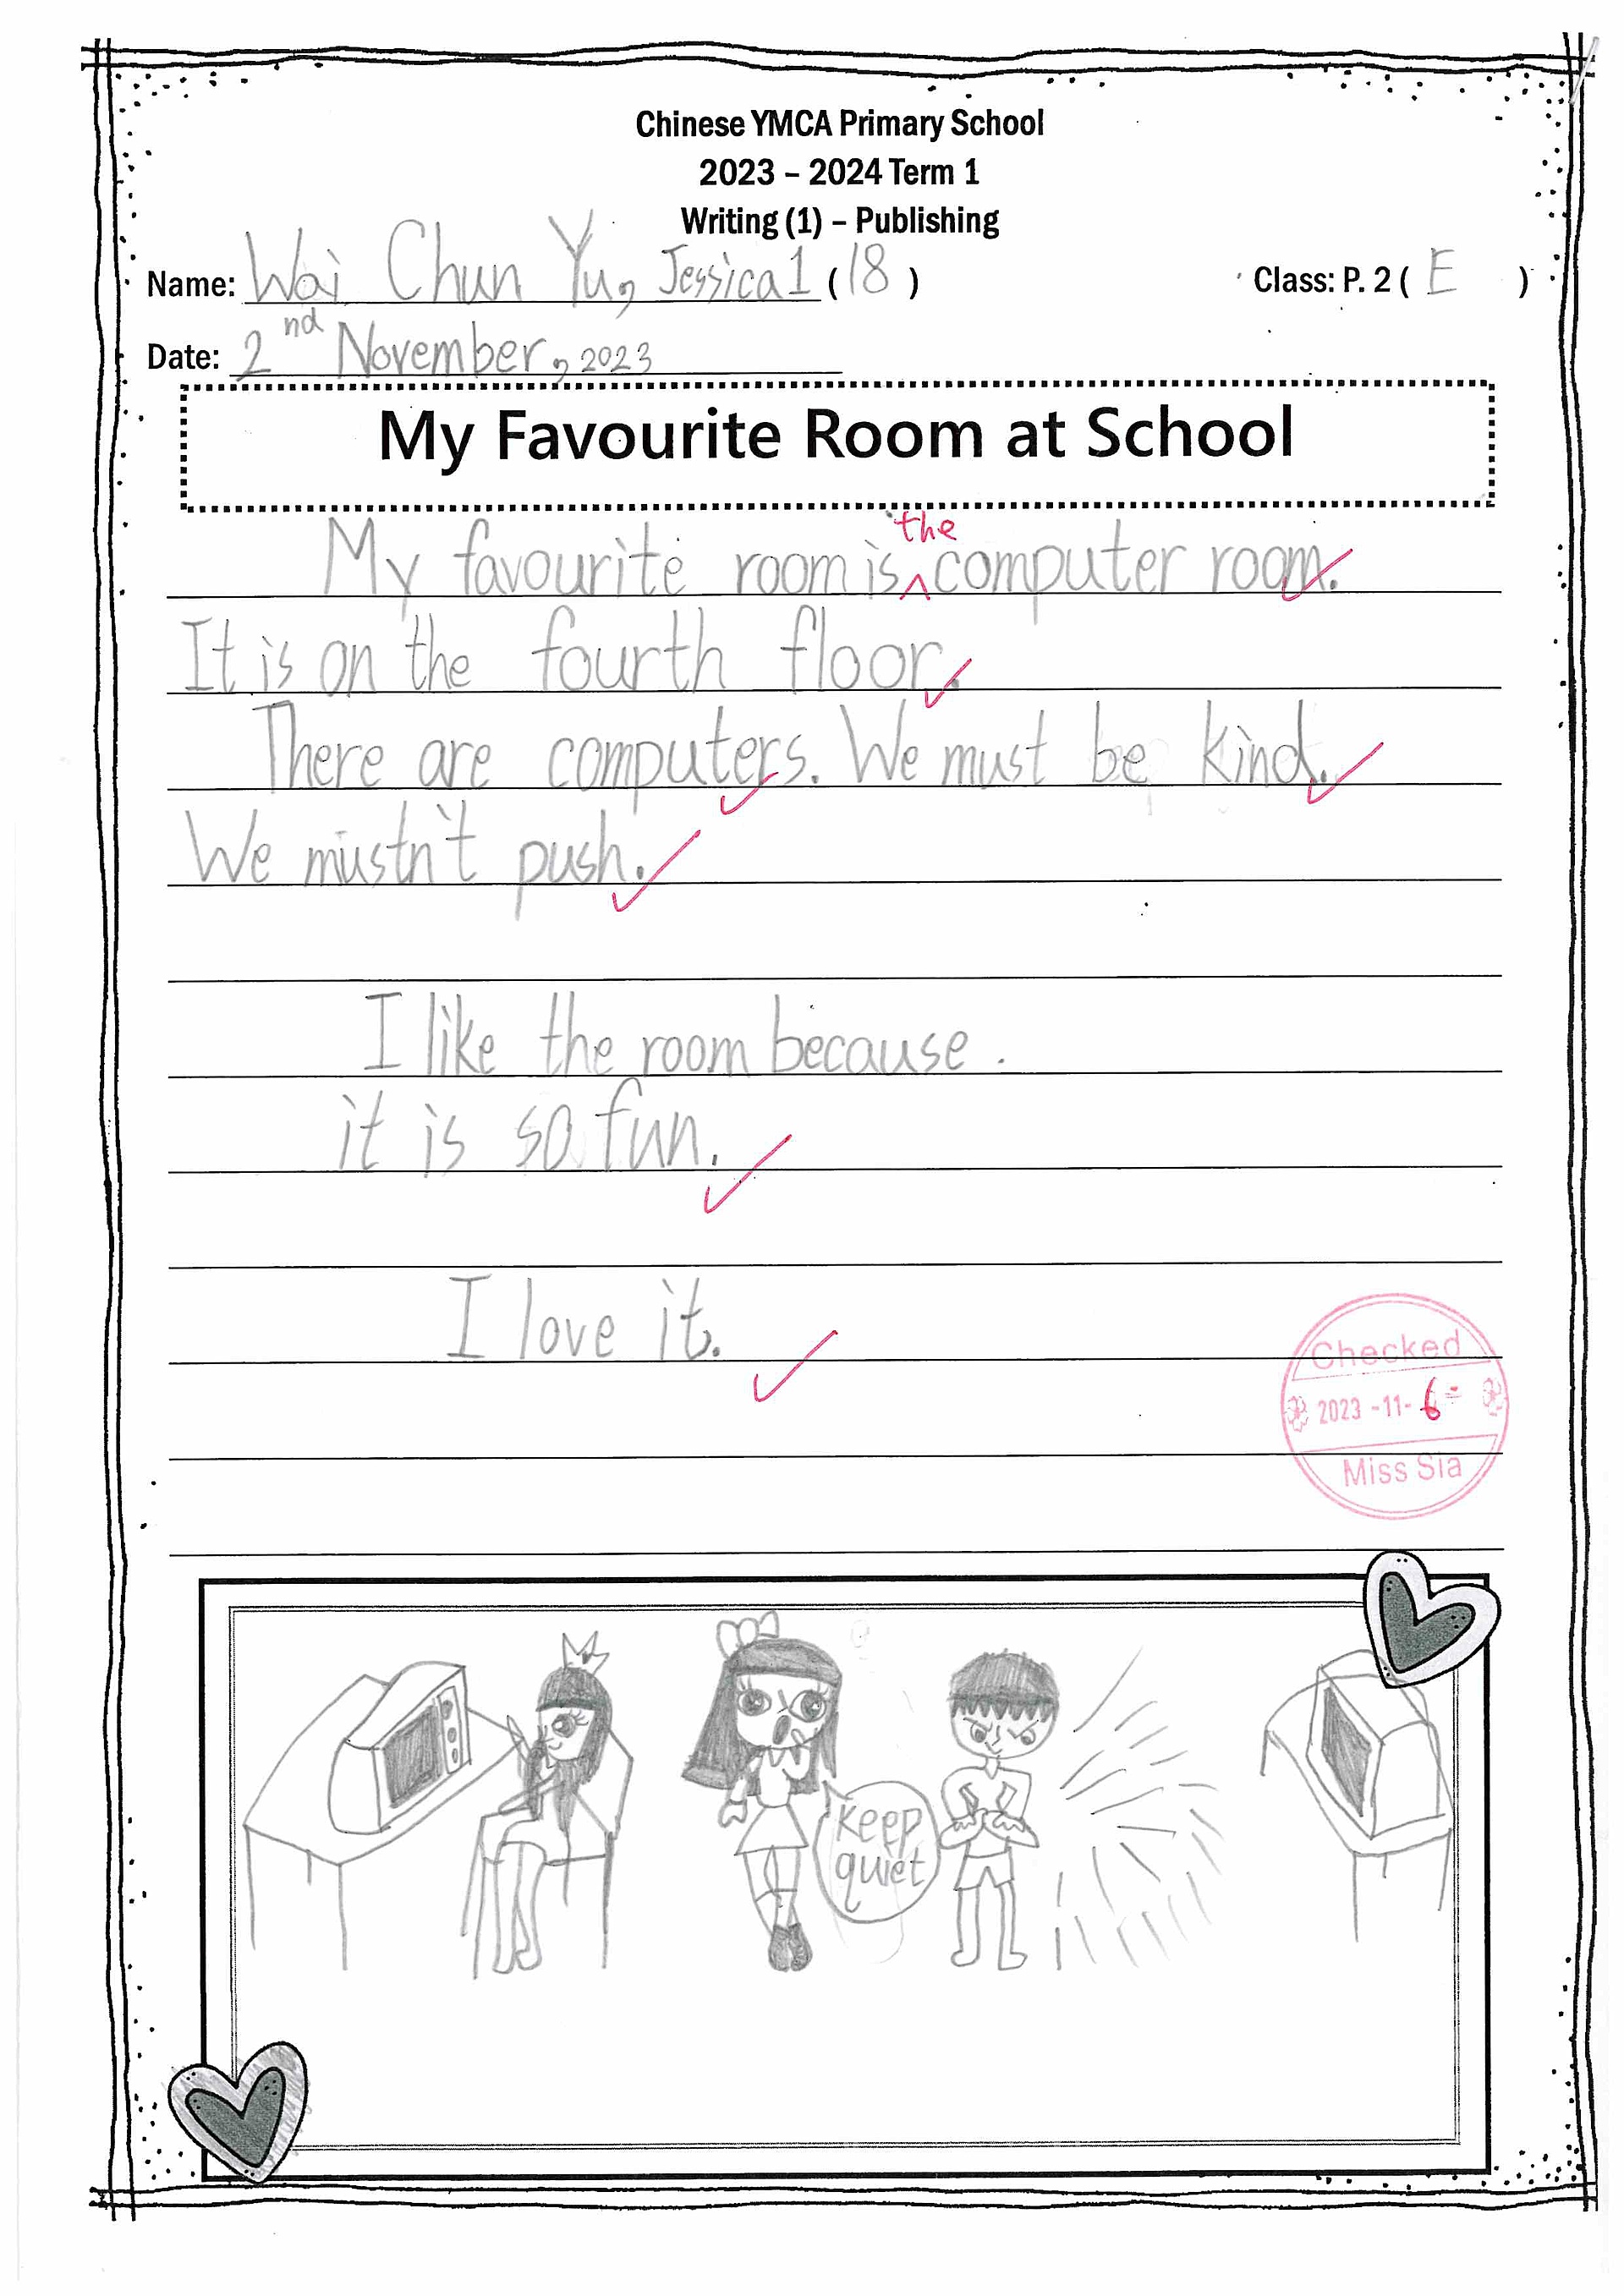 Chinese YMCA Primary School
2023 – 2024 Term 1
Writing (1) – Publishing
Name: Wai Chun Yu, Jessica1 (18) Class: P. 2 ( E )
Date: 2nd November, 2023
My Favourite Room at School
the
My favourite room is ^ computer room.
It is on the fourth floor.
There are computers. We must be kind.
We mustn't push.
I like the room because.
it is so fun.
I love it.
Checked
2023 -11- 6
Miss Sia
keep
quiet